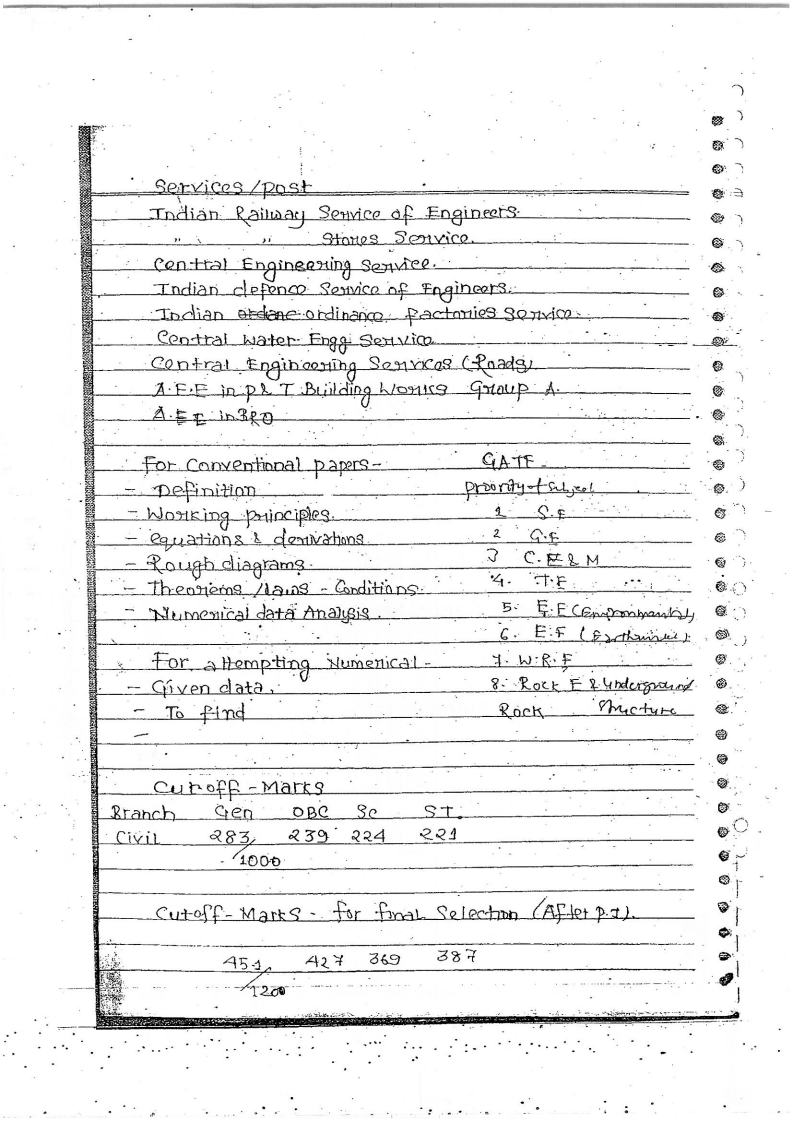 Services/post
Indian Railway Service of Engineers.
" " Stores Service.
Central Engineering Service.
Indian defence Service of Engineers.
Indian ordane ordinance factories service.
Central water Engg Service
Central Engineering Services (Roads)
A.E.E in P & T Building Works Group A.
A.E.E in BRO
For Conventional papers-
- Definition
- Working principles.
- equations & derivations.
- Rough diagrams.
- Theorems /laws - Conditions.
- Numerical data Analysis.
For attempting Numerical -
- Given data.
- To find
-
GATE
priority of subject
1 S.E
2 G.E
3 C.E & M
4. T.E
5. E.E (Environmental)
6. E.E
7. W.R.E
8. Rock E & Underground
Rock Structure
Cutoff - Marks
Branch Gen OBC SC ST.
Civil 283/1000 239 224 221
Cutoff-Marks - for final Selection (After P.I).
451/1200 427 369 387